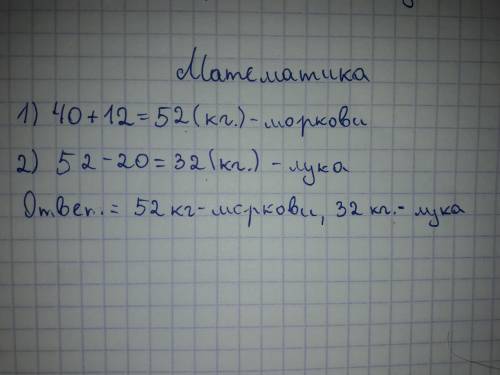 Математика
1) 40+12=52(кг.)-моркови
2) 52-20=32(кг.)-лука
Ответ.= 52 кг-моркови, 32 кг.- лука